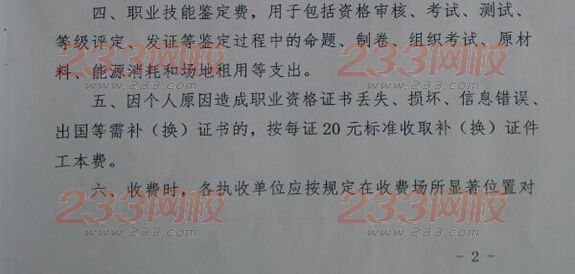 四、职业技能鉴定费，用于包括资格审核、考试、测试、
等级评定、发证等鉴定过程中的命题、制卷、组织考试、原材
料、能源消耗和场地租用等支出。
五、因个人原因造成职业资格证书丢失、损坏、信息错误、
出国等需补（换）证书的，按每证20元标准收取补（换）证件
工本费。
六、收费时，各执收单位应按规定在收费场所显著位置对
- 2 -
233网校
www.233.com
233网校
www.233.com
233网校
www.233.com
233网校
www.233.com